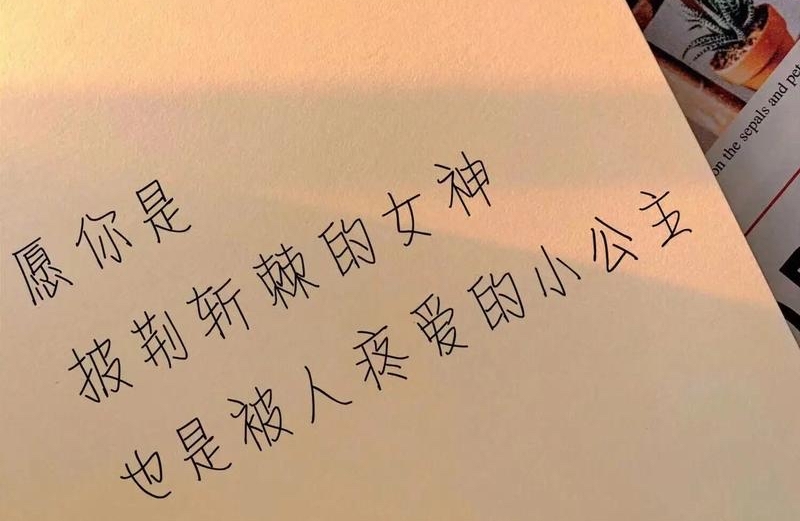 愿你是
披荆斩棘的女神
也是被人疼爱的小公主
on the sepals and pet